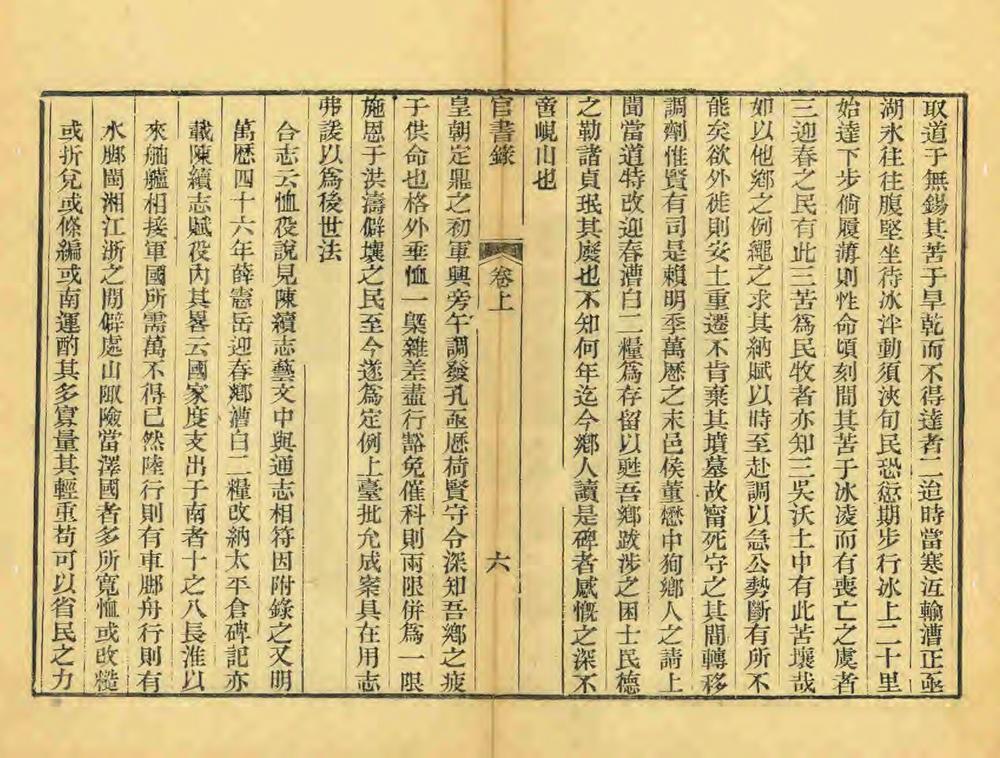 取道于無錫其苦于旱乾而不得達者二迨時當寒冱輸漕正亟
湖氷往往腹堅坐待冰泮動須浹旬民恐愆期步行冰上二十里
始達下步倘履薄則性命頃刻間其苦于冰凌而有喪亡之虞者
三迎春之民有此三苦爲民牧者亦知三吳沃土中有此苦壤哉
如以他鄉之例繩之求其納賦以時至赴調以急公勢斷有所不
能矣欲外徙則安土重遷不肯棄其墳墓故甯死守之其間轉移
調劑惟賢有司是賴明季萬厯之末邑侯董懋中狥鄉人之請上
聞當道特改迎春漕白二糧爲存留以甦吾鄉跋涉之困士民德
之勒諸貞珉其廢也不知何年迄今鄉人讀是碑者感慨之深不
啻峴山也
官書錄
卷上
六
皇朝定鼎之初軍興旁午調發孔亟厯荷賢守令深知吾鄉之疲
于供命也格外垂恤一槩雜差盡行豁免催科則兩限併爲一限
施恩于洪濤僻壤之民至今遂爲定例上臺批允成案具在用志
弗諼以爲後世法
合志云恤役說見陳續志藝文中與通志相符因附錄之又明
萬歷四十六年薛憲岳迎春鄉漕白二糧改納太平倉碑記亦
載陳續志賦役內其畧云國家度支出于南者十之八長淮以
來舳艫相接軍國所需萬不得已然陸行則有車腳舟行則有
水腳閩湘江浙之間僻處山陬險當澤國者多所寬恤或改糙
或折兌或條編或南運酌其多寡量其輕重苟可以省民之力